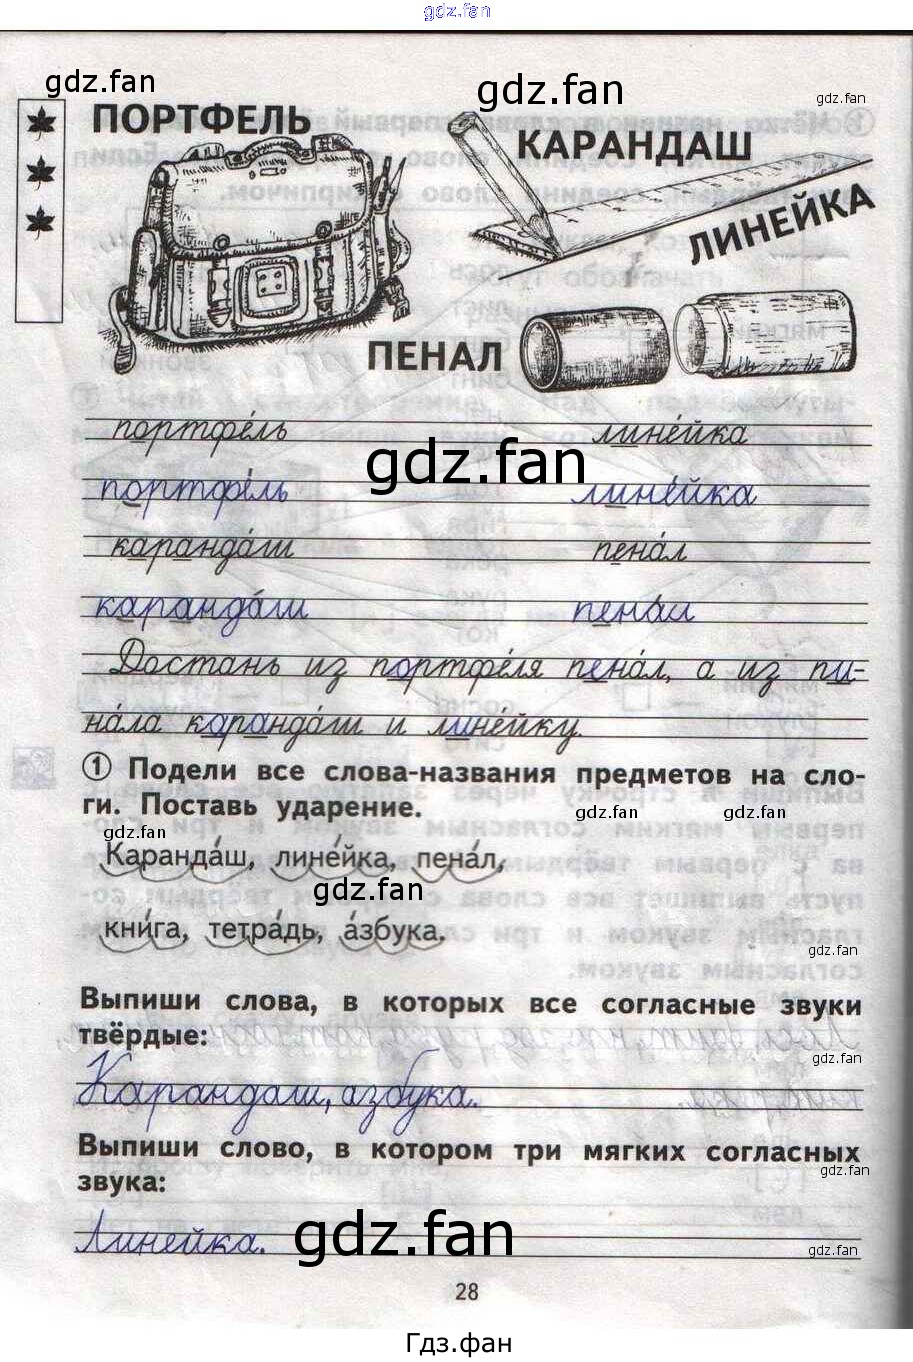 gdz.fan
gdz.fan
gdz.fan
gdz.fan
ПОРТФЕЛЬ
КАРАНДАШ
ЛИНЕЙКА
ПЕНАЛ
портфе́ль лине́йка
gdz.fan
портфе́ль лине́йка
каранда́ш пена́л
каранда́ш пена́л
Достань из портфе́ля пена́л, а из пи-
на́ла каранда́ш и лине́йку.
1 Подели все слова-названия предметов на сло-
ги. Поставь ударение.
gdz.fan gdz.fan
gdz.fan
Каранда́ш, лине́йка, пена́л,
gdz.fan
кни́га, тетра́дь, а́збука.
gdz.fan
Выпиши слова, в которых все согласные звуки
твёрдые:
gdz.fan
Карандаш, азбука.
Выпиши слово, в котором три мягких согласных
звука:
gdz.fan
Линейка.
gdz.fan
gdz.fan
28
Гдз.фан